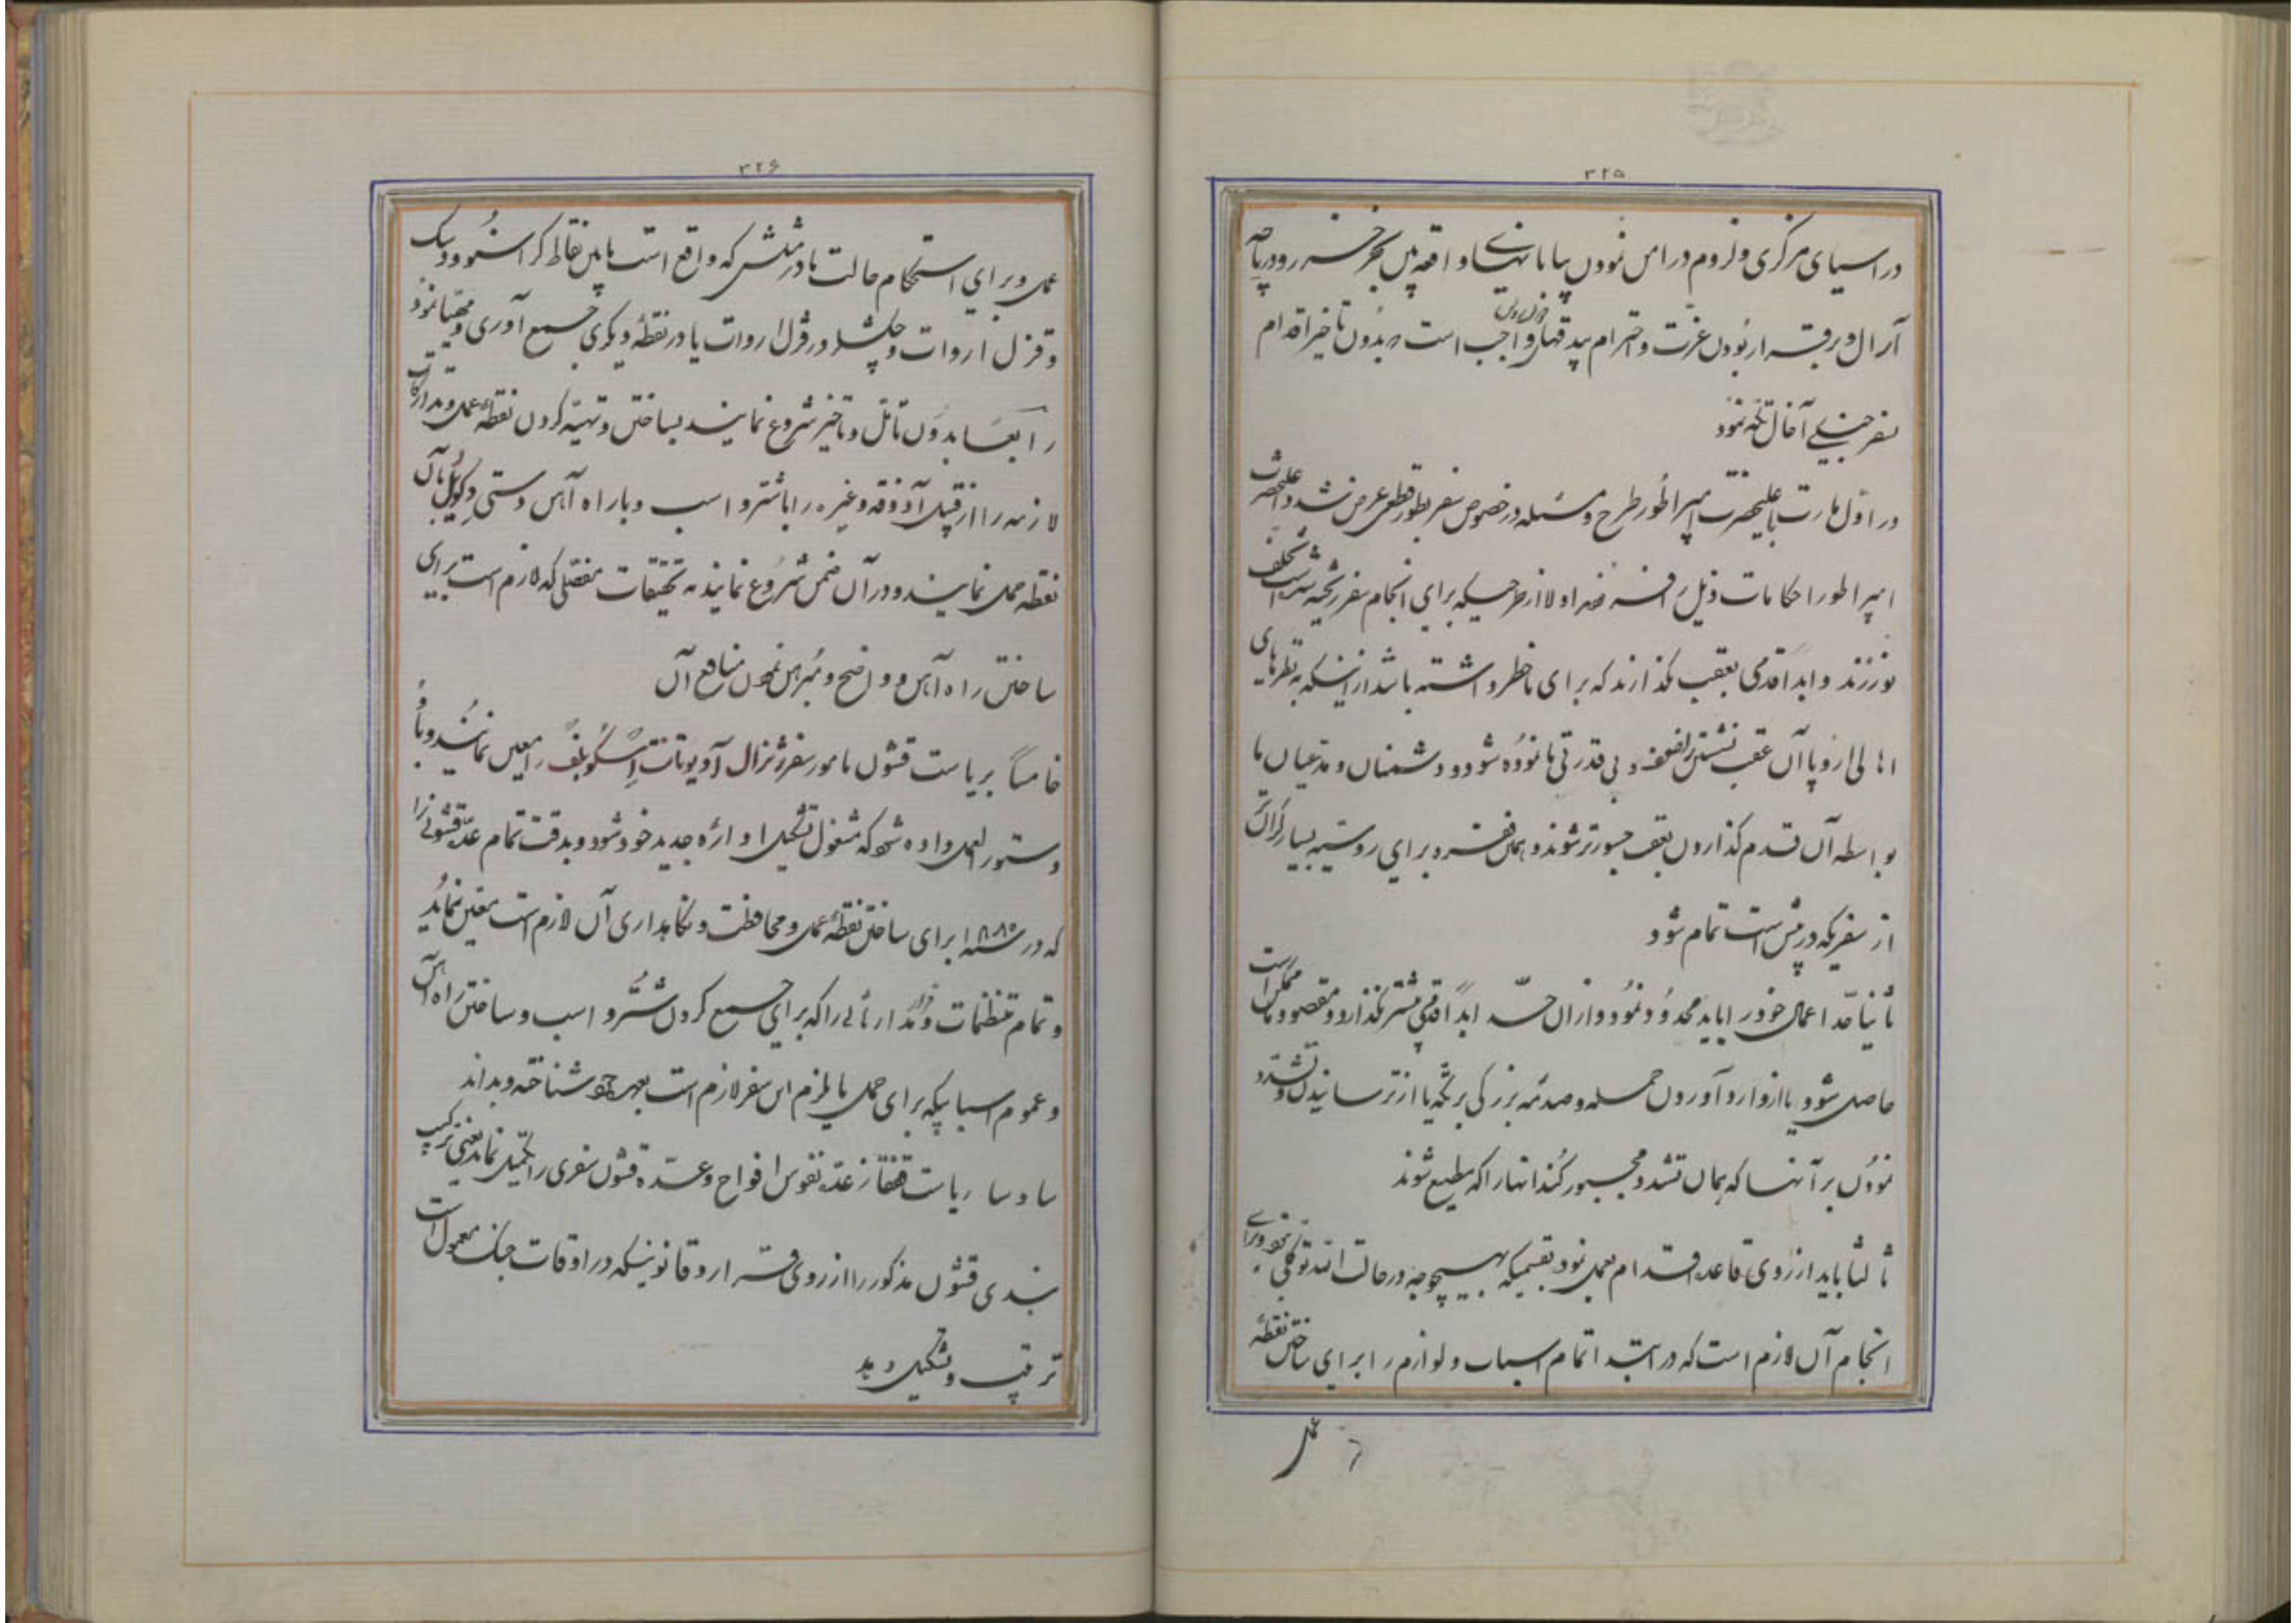 ۳۲۵
در اسیای مرکزی و لزوم در امن نمودن بیابانهای واقعه بین بحر خزر و دریاچه
آرال و برقرار نمودن عزت و احترام بیدقهای روس واجب است که بدون تاخیر اقدام
سفر جنگی آخال تکه نمود
در اول مارت با علیحضرت امپراطور طرح مسئله در خصوص سفر بطور قطعی عرض شد و اعلیحضرت
امپراطور احکامات ذیل را فرمودند اولا از طرحیکه برای انجام سفر ریخته شده است تخلف
نورزند و ابدا قدمی بعقب نگذارند که برای ما خطر داشته باشد از اینکه به نظرهای
اهالی اروپا آن عقب نشستن ضعف و بی قدرتی ما نموده شود و دشمنان و مدعیان ما
بواسطه آن قدم گذاردن بعقب جسورتر شوند و همان فقره برای روسیه بسیار گرانتر
از سفریکه در پیش است تمام شود
ثانیا حد اعمال خود را باید محدود نمود و از آن حد ابدا قدمی پیشتر نگذارد و مقصود ما ممکن است
حاصل شود یا از وارد آوردن حمله و صدمه بزرگی بر تکه یا از ترسانیدن و تشدد
نمودن بر آنها که همان تشدد مجبور کند انها را که مطیع شوند
ثالثا باید از روی قاعده اقدام بعمل نمود بقسمیکه بهیچوجه در حالت انیه توقفی نشود و برای
انجام آن لازم است که در ابتدا تمام اسباب و لوازم را برای ساختن نقطه
عمل
۳۲۶
عمل و برای استحکام حالت ما در مثلثی که واقع است مابین نقاط کراسنووودسک
و قزل اروات و چکشلر در قزل اروات یا در نقطه دیگری جمع آوری و مهیا نمود
رابعا بدون تامل و تاخیر شروع نمایند بساختن و تهیه کردن نقطه عمل و تدارکات
لازمه را از قبیل آذوقه و غیره را با شتر و اسب و با راه آهن دستی دکویل بآن
نقطه حمل نمایند و در آن ضمن شروع نمایند به تحقیقات مفصلی که لازم است برای
ساختن راه آهن و واضح و مبرهن نمودن منافع آن
خامسا بریاست قشون مامور سفر ژنرال آدیوتانت اسکوبلف را معین نمایند و باو
دستور العمل داده شود که مشغول تشکیل اداره جدید خود شود و بدقت تمام عده قشونی را
که در سنه ۱۸۸۰ برای ساختن نقطه عمل و محافظت و نگاهداری آن لازم است معین نماید
و تمام تنظیمات و قرار مدارهائی را که برای جمع کردن شتر و اسب و ساختن راه آهن
و عموم اسبابیکه برای حمل مایلزم این سفر لازم است بعهده خود شناخته و بداند
سادسا ریاست قفقاز عده نفوس افواج و عده قشون سفری را تکمیل نماید یعنی ترکیب
بندی قشون مذکور را از روی قرار و قانونیکه در اوقات جنگ معمول است
ترتیب و تشکیل دهد